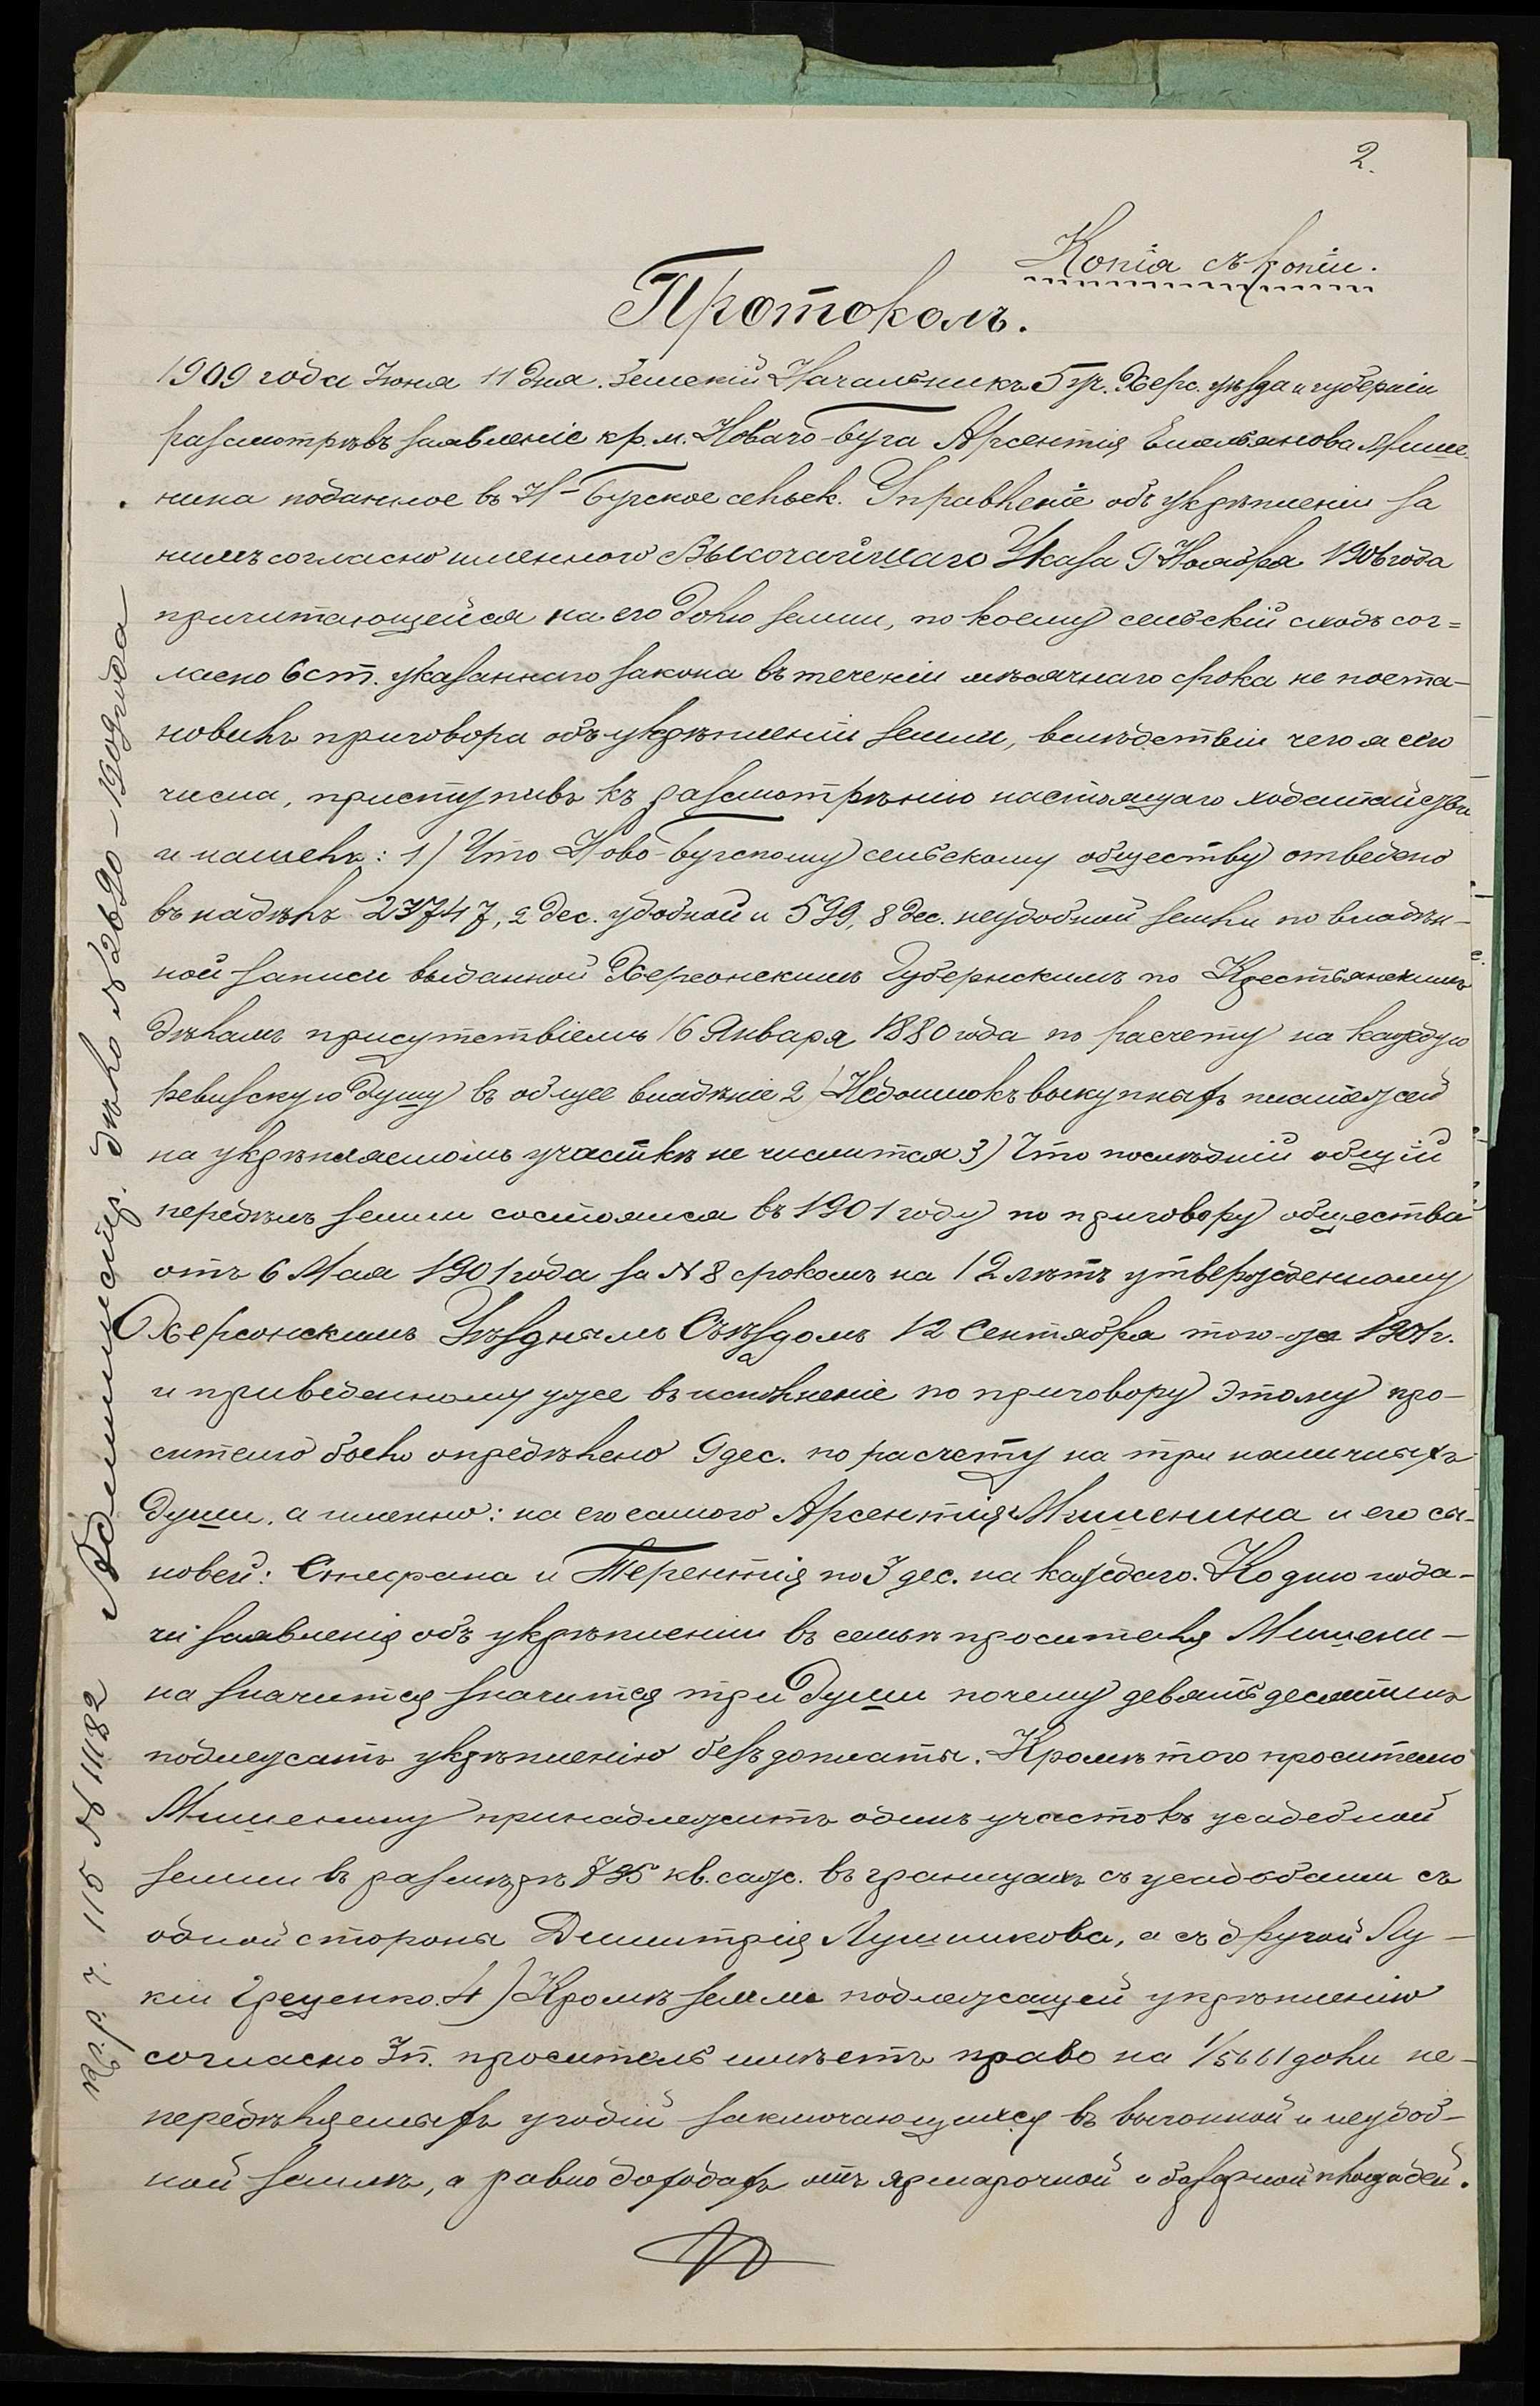 2.
Копія съ копіи.
Протоколъ.
1909 года Іюня 11 дня. Земскій Начальникъ 5 уч. Херс. уѣзда и губерніи
разсмотрѣвъ заявленіе кр. м. Новаго-Буга Арсентія Емельянова Мише-
нина поданное въ Н-Бугское сельск. Управленіе объ укрѣпленіи за
нимъ согласно именного Высочайшаго Указа 9 Ноября 1906 года
причитающейся на его долю земли, по коему сельскій сходъ сог=
ласно 6 ст. указаннаго закона въ теченіи мѣсячнаго срока не поста-
новилъ приговора объ укрѣпленіи земли, вслѣдствіи чего я сего
числа, приступивъ къ разсмотрѣнію настоящаго ходатайства
и нашелъ: 1) Что Ново-Бугскому сельскому обществу отведено
въ надѣлъ 23747,2 дес. удобной и 599,8 дес. неудобной земли по владѣн-
ной записи выданной Херсонскимъ Губернскимъ по Крестьянскимъ
дѣламъ присутствіемъ 16 Января 1880 года по расчету на каждую
ревизскую душу въ общее владѣніе 2) Недоимокъ выкупныхъ платежей
на укрѣпляемомъ участкѣ не числится 3) Что послѣдній общій
передѣлъ земли состоялся въ 1901 году по приговору общества
отъ 6 Мая 1901 года за N 8 срокомъ на 12 лѣтъ утвержденному
Херсонскимъ Уѣзднымъ Съѣздомъ 12 Сентября того-же 1901 г.
и приведенному уже въ исполненіе по приговору этому про-
сителю было опредѣлено 9 дес. по расчету на три наличныхъ
души, а именно: на его самого Арсентія Мишенина и его сы-
новей: Стефана и Терентія по 3 дес. на каждаго. Ко дню пода-
чи заявленія объ укрѣпленіи въ семьѣ просителя Мишени-
на значится значится три души почему девять десятинъ
подлежатъ укрѣпленію безъ доплаты. Кромѣ того просителю
Мишенину принадлежитъ одинъ участокъ усадебной
земли въ размѣрѣ 795 кв. саж. въ границахъ съ усадьбами съ
одной стороны Димитрія Лушникова, а съ другой Лу-
кіи Греценко. 4) Кромѣ земли подлежащей укрѣпленію
согласно 3 п. проситель имѣетъ право на 1/5661 доли не-
передѣляемыхъ угодій заключающихся въ выгонной и неудоб-
ной землѣ, а равно доходахъ отъ ярмарочной и базарной площадей.
Кр. р. ч. 115 № 11182 Администр. дѣло № 2690 - 1909 года